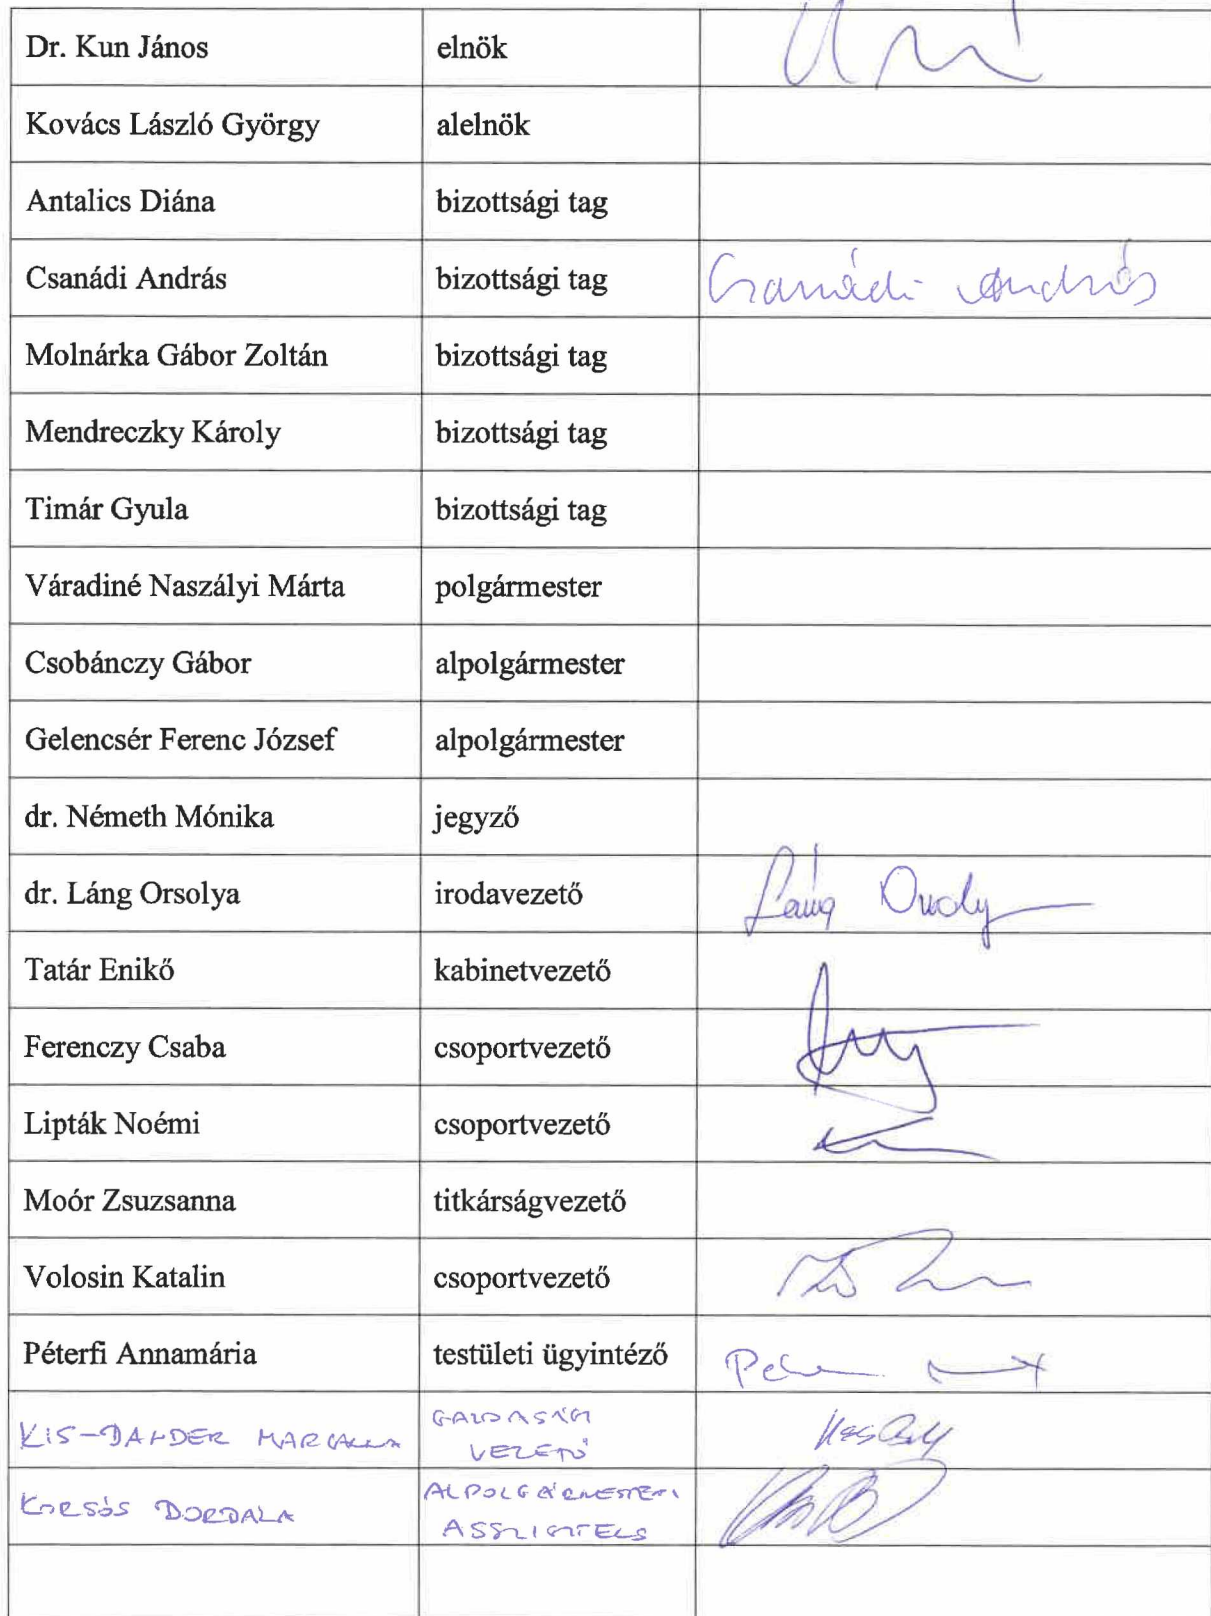 Dr. Kun János elnök
Kovács László György alelnök
Antalics Diána bizottsági tag
Csanádi András bizottsági tag Csanádi András
Molnárka Gábor Zoltán bizottsági tag
Mendreczky Károly bizottsági tag
Timár Gyula bizottsági tag
Váradiné Naszályi Márta polgármester
Csobánczy Gábor alpolgármester
Gelencsér Ferenc József alpolgármester
dr. Németh Mónika jegyző
dr. Láng Orsolya irodavezető Láng Orsolya
Tatár Enikő kabinetvezető
Ferenczy Csaba csoportvezető
Lipták Noémi csoportvezető
Moór Zsuzsanna titkárságvezető
Volosin Katalin csoportvezető
Péterfi Annamária testületi ügyintéző
KIS-DANDER GAZDASÁGI
VEZETŐ
KORSÓS ALPOLGÁRMESTERI